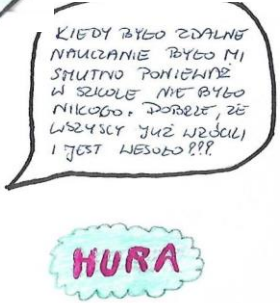 KIEDY BYŁO ZDALNE
NAUCZANIE BYŁO MI
SMUTNO PONIEWAŻ
W SZKOLE NIE BYŁO
NIKOGO. DOBRZE, ŻE
WSZYSCY JUŻ WRÓCILI
I JEST WESOŁO!!!
HURA